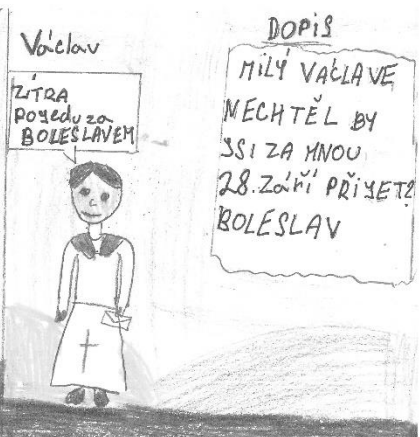 Václav
ZÍTRA
Poyedu za
BOLESLAVEM
DOPIS
MILÝ VÁCLAVE
NECHTĚL BY
JSI ZA MNOU
28. Září PŘIYET?
BOLESLAV